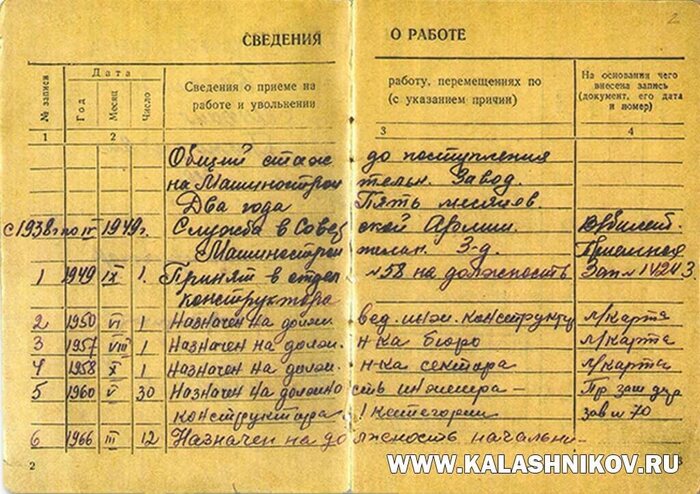 2
СВЕДЕНИЯ О РАБОТЕ
№ записи
Дата
Год Месяц Число
Сведения о приеме на работу, перемещениях по
работе и увольнении (с указанием причин)
На основании чего
внесена запись
(документ, его дата
и номер)
1 2 3 4
Общий стаж до поступления
на Машиностроительн. Завод.
Два года Пять месяцев
с 1938г по IX 1949г. Служба в Советской Армии.
Машиностроительн. З-д. Приемная
1 1949 IX 1. Принят в отдел №58 на должность Зап №14243
конструктора
2 1950 VI 1 Назначен на должн. вед. инж. конструкт м/карта
3 1957 VIII 1 Назначен на должн. н-ка бюро м/карта
4 1958 X 1 Назначен на должн. н-ка сектора м/карта
5 1960 V 30 Назначен на должность инженера- Пр. зам дир
конструктора I категории зав № 70
6 1966 III 12 Назначен на должность начальни-
2
3
WWW.KALASHNIKOV.RU